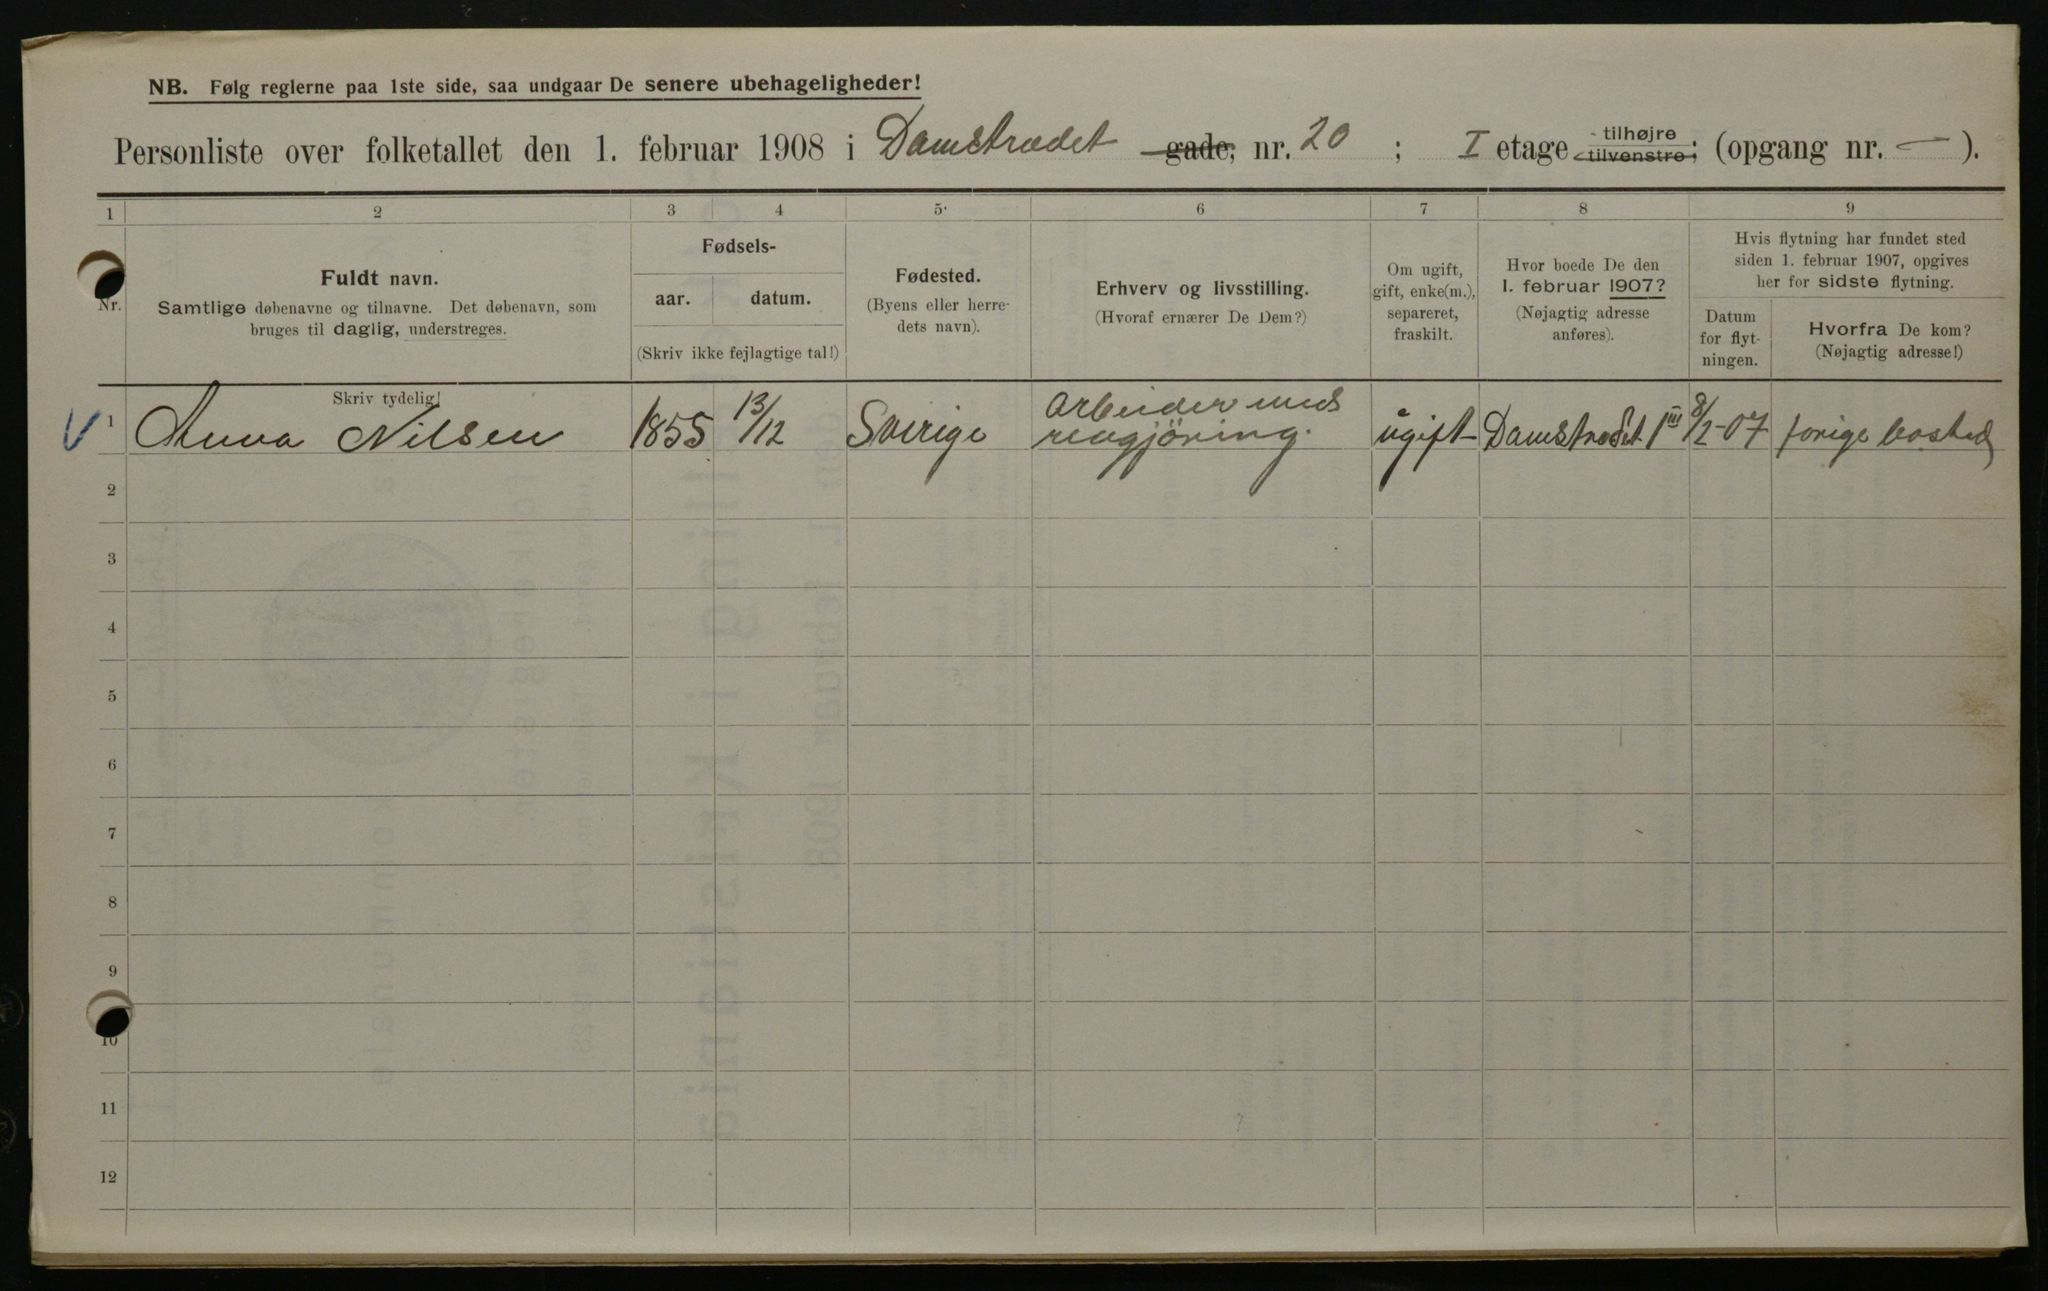 NB. Følg reglerne paa 1ste side, saa undgaar De senere ubehageligheder!
Personliste over folketallet den 1. februar 1908 i Damstrædet gade, nr. 20 ; I etage tilhøjre tilvenstre; (opgang nr. — ).
1 2 3 4 5. 6 7 8 9
Nr.
Fuldt navn.
Samtlige døbenavne og tilnavne. Det døbenavn, som
bruges til daglig, understreges.
Fødsels-
aar. datum.
(Skriv ikke fejlagtige tal!)
Fødested.
(Byens eller herre-
dets navn).
Erhverv og livsstilling.
(Hvoraf ernærer De Dem?)
Om ugift,
gift, enke(m.),
separeret,
fraskilt.
Hvor boede De den
1. februar 1907?
(Nøjagtig adresse
anføres).
Hvis flytning har fundet sted
siden 1. februar 1907, opgives
her for sidste flytning.
Datum
for flyt-
ningen.
Hvorfra De kom?
(Nøjagtig adresse!)
Skriv tydelig!
V 1 Anna Nilsen 1855 13/12 Sverige arbeider med
rengjöring. ugift Damstrædet 1 III 8/2-07 forige bosted
2
3
4
5
6
7
8
9
10
11
12